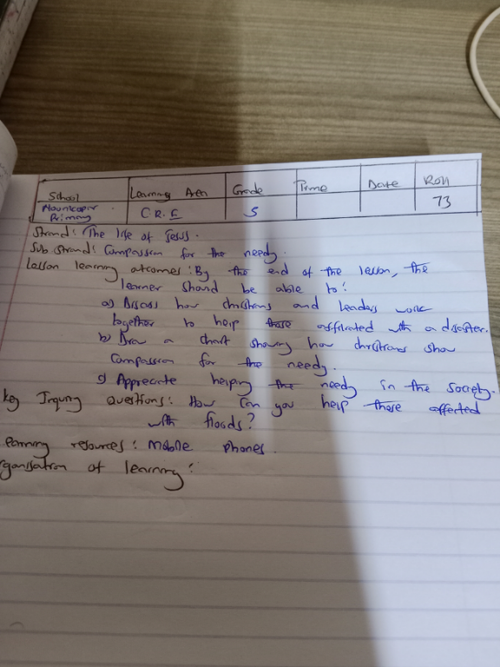 School Learning Area Grade Time Date Roll
Primary C.R.E 5 73
Strand: The life of Jesus.
Sub strand: Compassion for the needy.
Lesson learning outcomes: By the end of the lesson, the
learner should be able to:
a) Discuss how christians and leaders work
together to help those affected with a disaster.
b) Draw a chart showing how christians show
compassion for the needy.
c) Appreciate helping the needy in the society.
Key Inquiry questions: How can you help those affected
with floods?
earning resources: Mobile phones.
rganisation of learning: